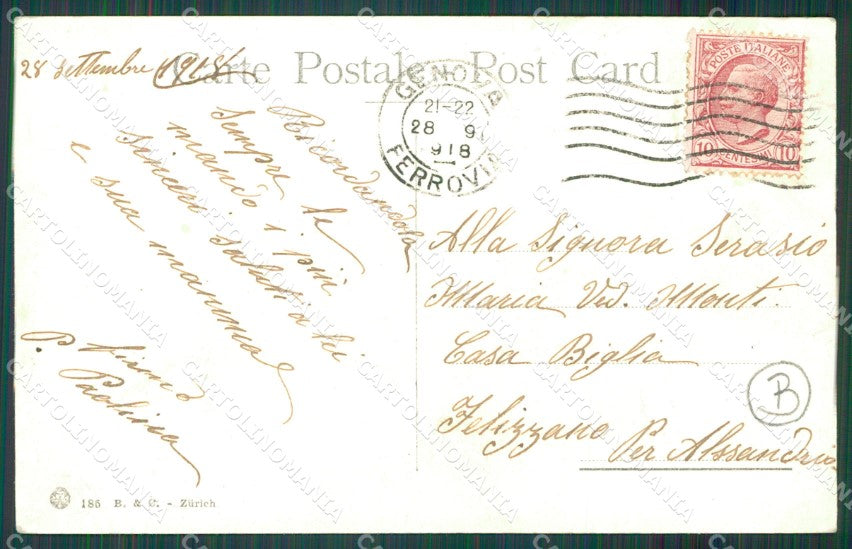 28 Settembre 1918
Carte Postale Post Card
GENOVA
21-22
28 9
918
FERROVIA
POSTE ITALIANE
10 CENTESIMI 10
Ricordandola
sempre le
mando i più
sinceri saluti a lei
e sua mamma
P.
Paolina
Alla Signora Serasio
Maria Ved. Monti.
Casa Biglia
Felizzano
Per Alssandria
B
186 B. & C. - Zürich
CARTOLINOMANIA